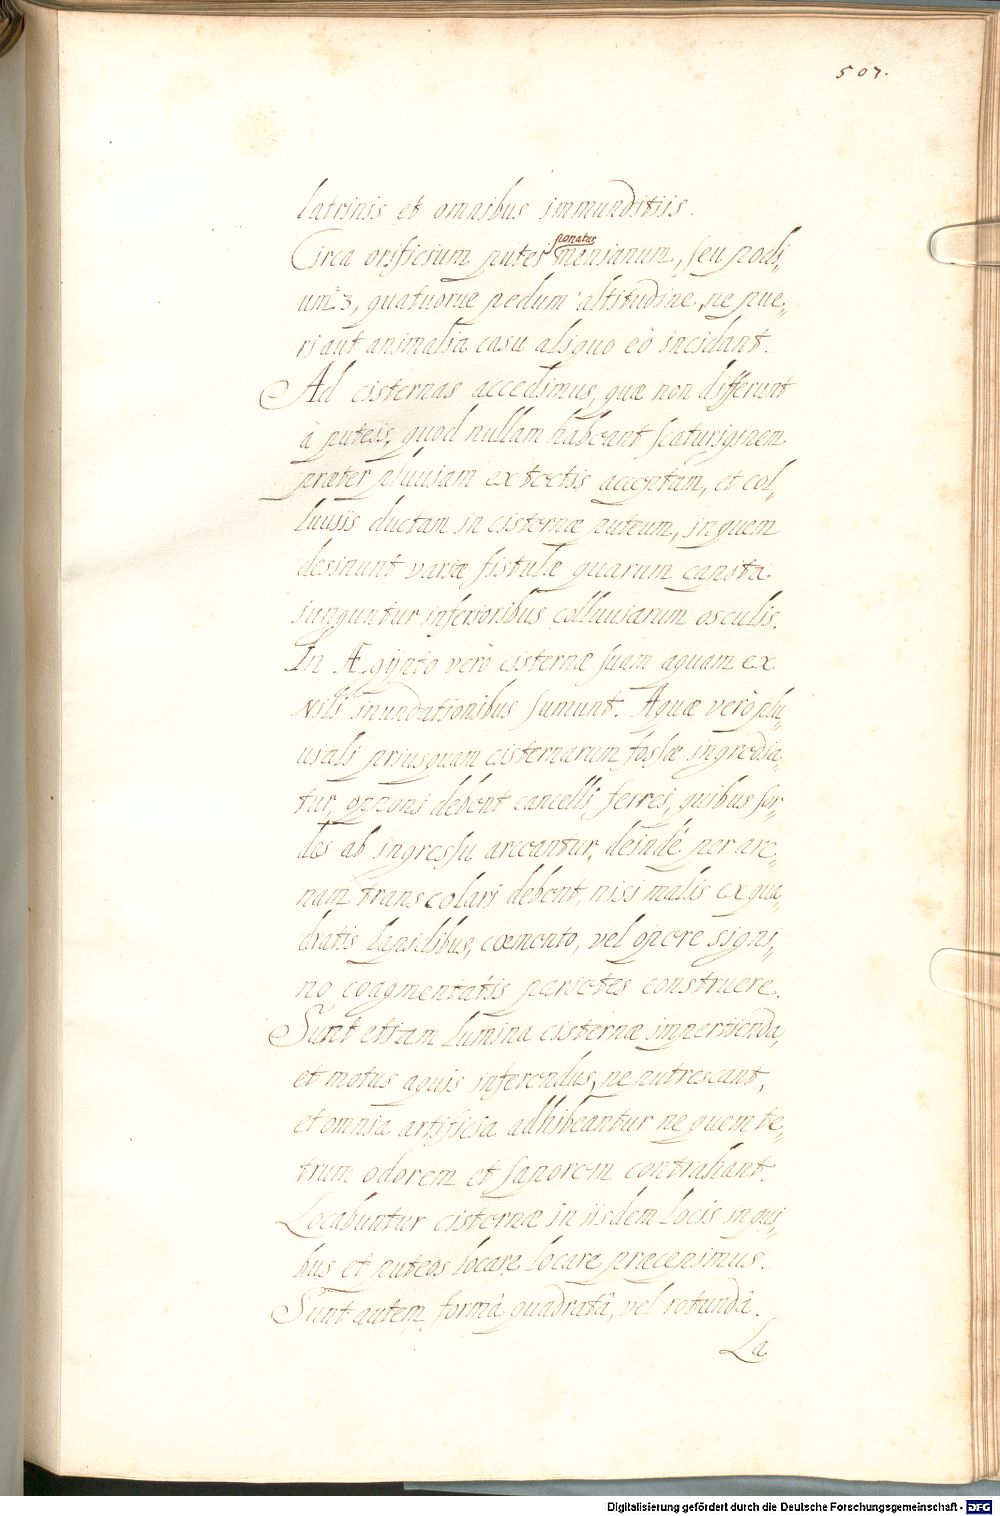 507.
latrinis et omnibus immunditiis.
Circa orificium putei ponatus mænianum, seu podi„
um 3, quatuorue pedum altitudine, ne pue„
ri aut animalia casu aliquo eò incidant.
Ad cisternas accedimus, quæ non differunt
à puteis, quod nullam habeant scaturiginem
præter pluuiam ex tectis acceptam, et col„
luuiis ductam in cisternæ puteum, in quem
desinunt variæ fistulæ quarum capita
iunguntur inferioribus colluuiarum osculis.
In Ægÿpto verò cisternæ suam aquam ex
Nili inundationibus sumunt. Aquæ verò plu„
uiali priusquam cisternarum fossæ ingredia„
tur, opponi debent cancelli ferrei, quibus sor„
des ab ingressu arceantur, deindè per are„
nam transcolari debent, nisi malis ex qua„
dratis lapidibus, cœmento, vel opere signi„
no coagmentatis parietes construere.
Sunt etiam lumina cisternæ impertienda,
et motus aquis inferendus, ne putrescant,
et omnia artificia adhibeantur ne quem te„
trum odorem et saporem contrahant.
Locabuntur cisternæ in iisdem locis in qui„
bus et puteos locare locare præcepimus.
Sunt autem formâ quadratâ, vel rotundâ.
La
Digitalisierung gefördert durch die Deutsche Forschungsgemeinschaft - DFG